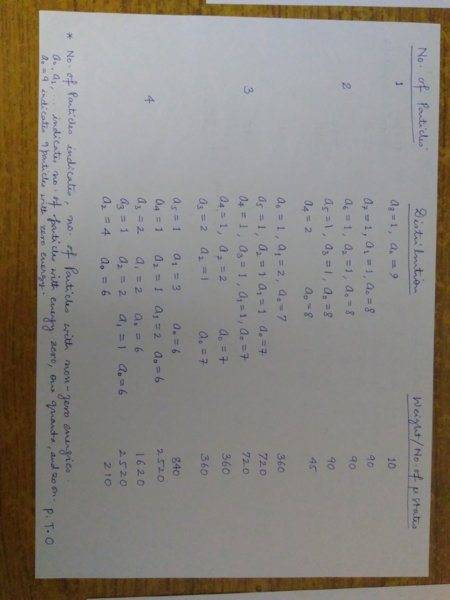 No. of Particles Distribution Weight/No. of μstates
1 a₈ = 1, a₀ = 9 10
a₇ = 1, a₁ = 1, a₀ = 8 90
2 a₆ = 1, a₂ = 1, a₀ = 8 90
a₅ = 1, a₃ = 1, a₀ = 8 90
a₄ = 2 a₀ = 8 45
a₆ = 1, a₁ = 2, a₀ = 7 360
a₅ = 1, a₂ = 1 a₁ = 1 a₀ = 7 720
3 a₄ = 1, a₃ = 1, a₁ = 1, a₀ = 7 720
a₄ = 1, a₂ = 2 a₀ = 7 360
a₃ = 2 a₂ = 1 a₀ = 7 360
a₅ = 1 a₁ = 3 a₀ = 6 840
4 a₄ = 1 a₂ = 1 a₁ = 2 a₀ = 6 2520
a₃ = 2 a₁ = 2 a₀ = 6 1620
a₃ = 1 a₂ = 2 a₁ = 1 a₀ = 6 2520
a₂ = 4 a₀ = 6 210
* No. of Particles indicates, no. of Particles with non-zero energies
a₀, a₁, indicates no. of particles with energy zero, one quanta, and so on. P.T.O
a₀ = 9 indicates 9 particles with zero energy.